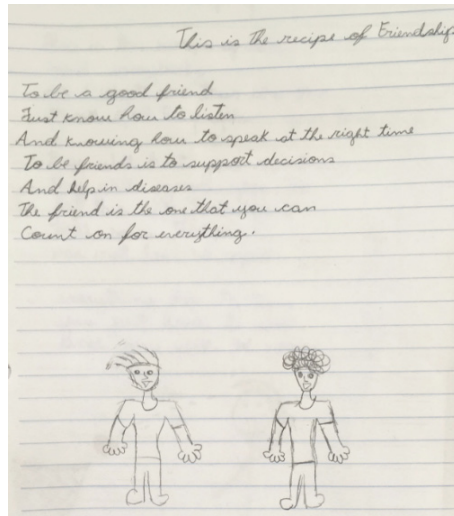 This is the recipe of Friendship
To be a good friend
Just know how to listen
And knowing how to speak at the right time
To be friends is to support decisions
And help in diseases
The friend is the one that you can
Count on for everything.